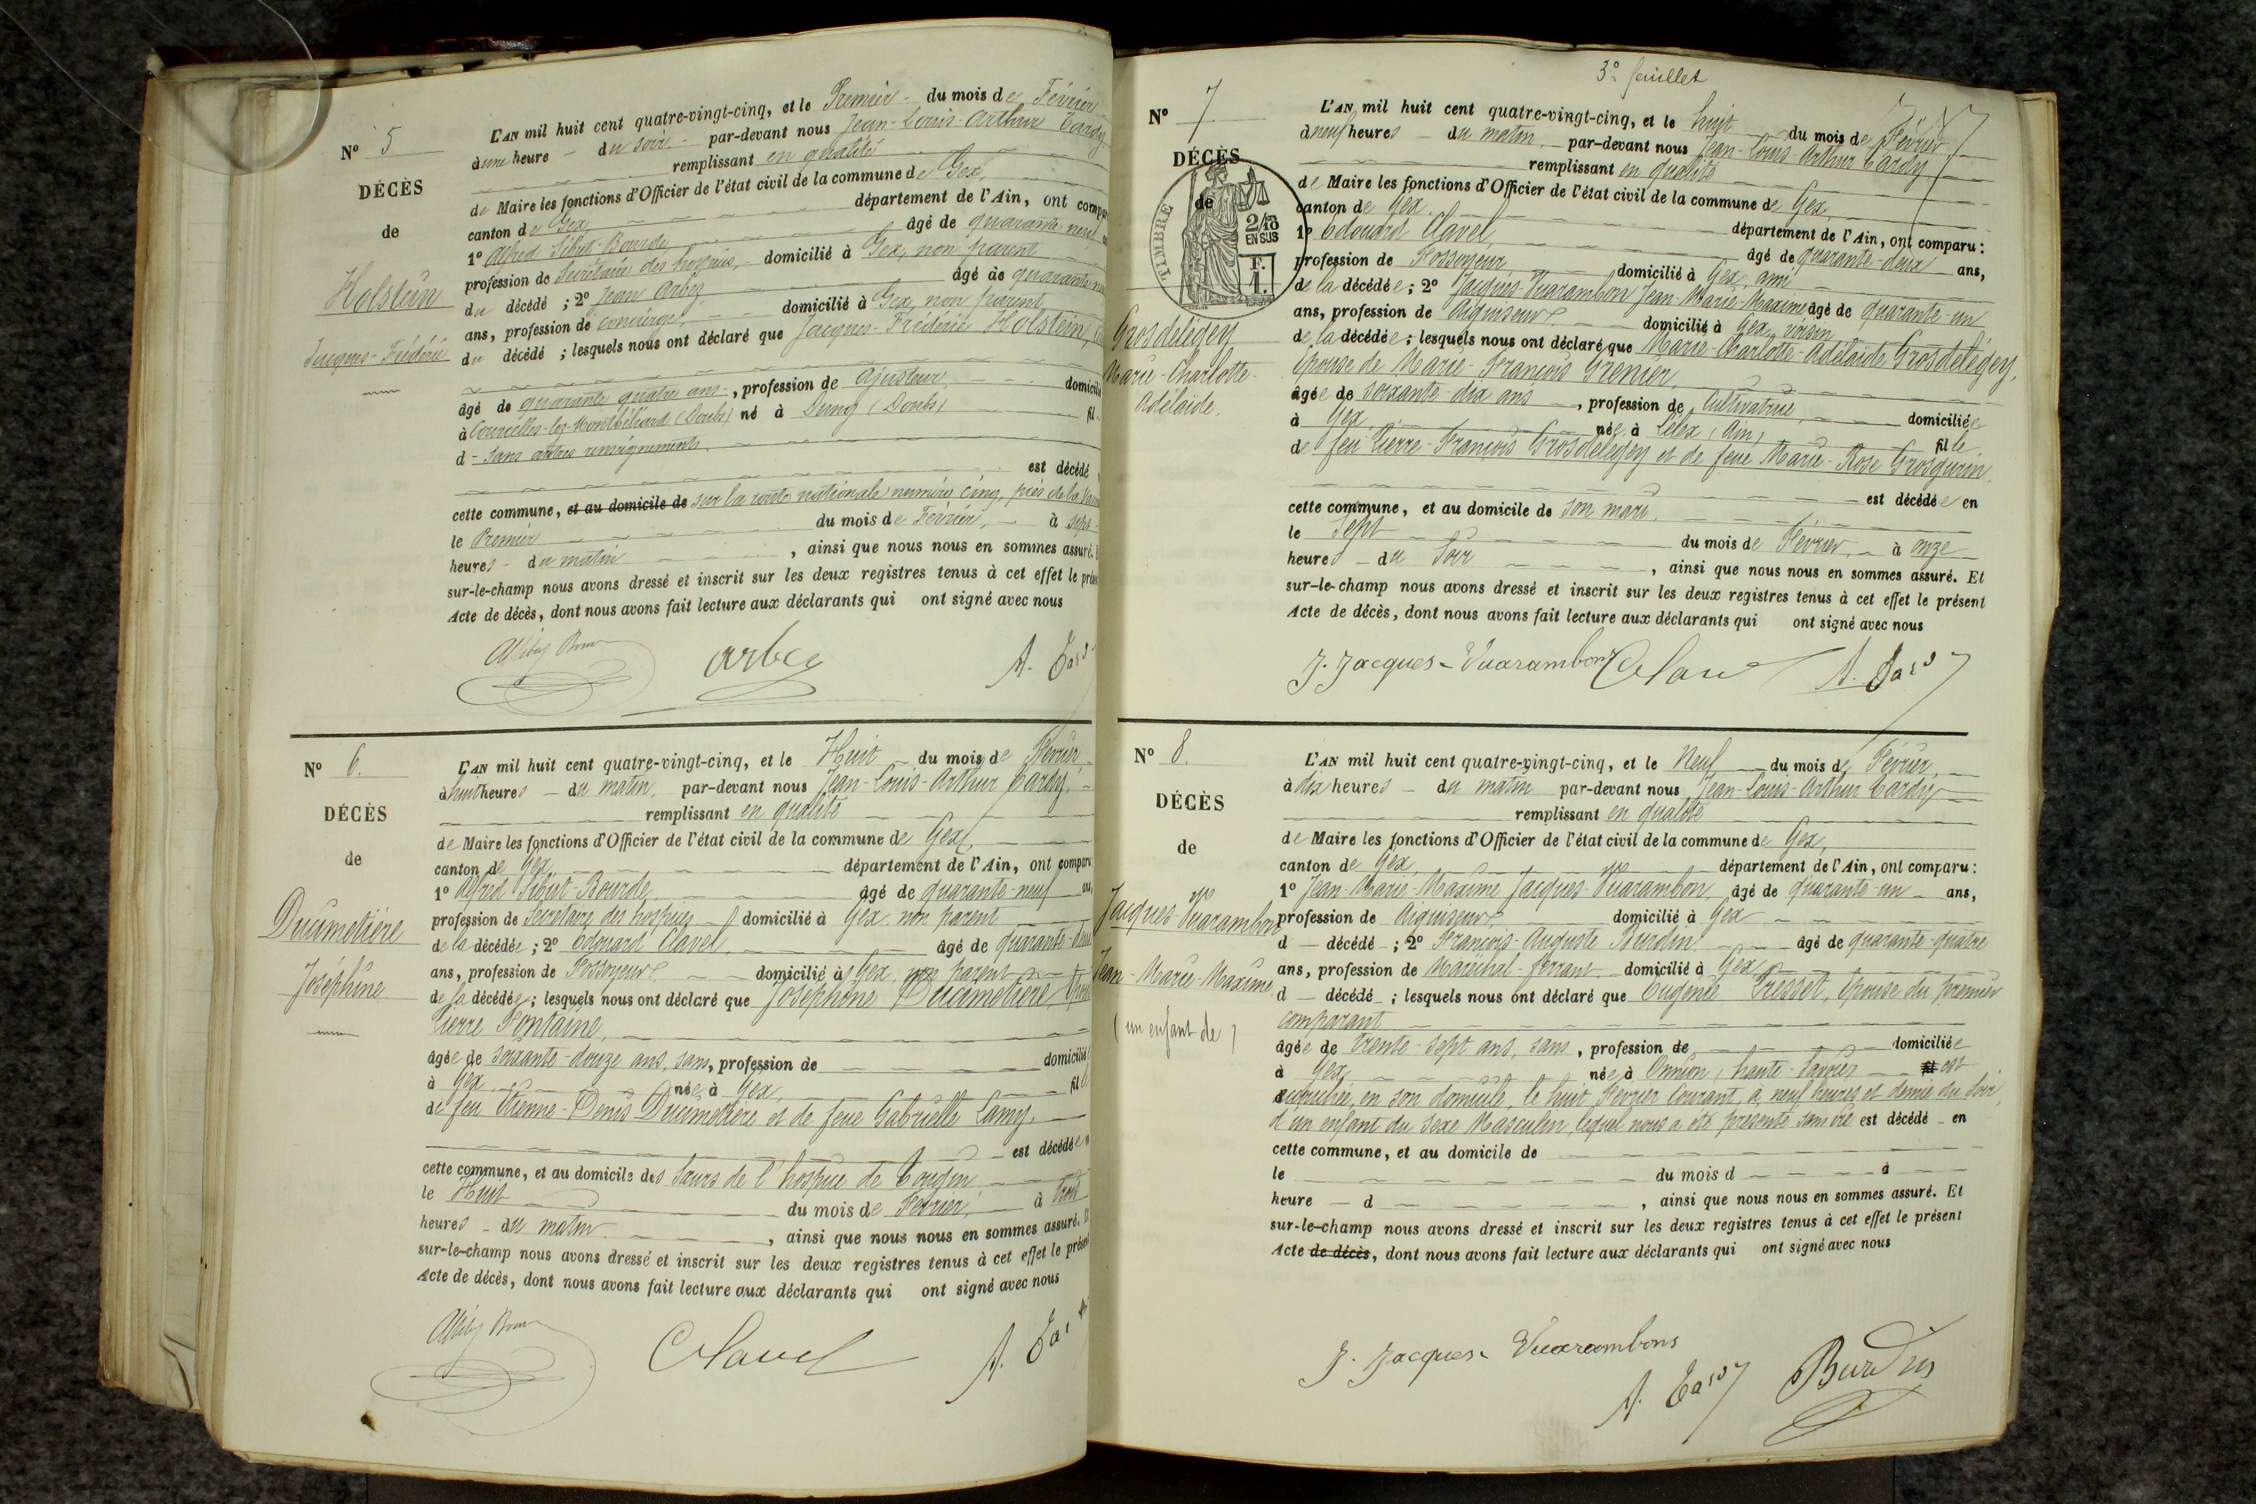 Nº 5
DÉCÈS
de
Holstein
Jacques-Frédéric
L'AN mil huit cent quatre-vingt-cinq, et le Premier du mois de Février
à une heure du soir par-devant nous Jean-Louis-Arthur Tardy
remplissant en qualité
de Maire les fonctions d'Officier de l'état civil de la commune de Gex,
canton de Gex département de l'Ain, ont compar
1º Alfred Sibut-Bourde âgé de quarante neuf
profession de Secrétaire des hospices, domicilié à Gex, non parent
du décédé ; 2º Jean Arbez âgé de quarante
ans, profession de concierge, domicilié à Gex, non parent
du décédé ; lesquels nous ont déclaré que Jacques-Frédéric Holstein,
âgé de quarante quatre ans, profession de Ajusteur domicilié
à Courcelles-lez-Montbéliard (Doubs) né à Dung (Doubs) fil
d - sans autres renseignements.
est décédé
cette commune, et au domicile de sur la route nationale numéro cinq, près de la
le Premier du mois de Février, à sept
heures du matin , ainsi que nous nous en sommes assuré.
sur-le-champ nous avons dressé et inscrit sur les deux registres tenus à cet effet le prése
Acte de décès, dont nous avons fait lecture aux déclarants qui ont signé avec nous
Arbez A. Tardy
Nº 6.
DÉCÈS
de
Ducimetière
Joséphine
L'AN mil huit cent quatre-vingt-cinq, et le Huit du mois de Février
à huit heures du matin, par-devant nous Jean-Louis-Arthur Tardy,
remplissant en qualité
de Maire les fonctions d'Officier de l'état civil de la commune de Gex,
canton de Gex département de l'Ain, ont comparu
1º Alfred Sibut-Bourde, âgé de quarante-neuf ans,
profession de Secrétaire des hospices domicilié à Gex non parent
de la décédée ; 2º Edouard Clavel, âgé de quarante-deux
ans, profession de Fossoyeur domicilié à Gex, non parent
de la décédée ; lesquels nous ont déclaré que Joséphine Ducimetière, épouse
Pierre Fontaine,
âgée de soixante-douze ans, sans, profession de domicilié
à Gex née à Gex, fille
de feu Etienne-Denis Ducimetière et de feue Gabrielle Lamy.
est décédée
cette commune, et au domicile des Sœurs de l'hospice de Tougin
le Huit du mois de Février, à trois
heures du matin , ainsi que nous nous en sommes assuré. E
sur-le-champ nous avons dressé et inscrit sur les deux registres tenus à cet effet le présen
Acte de décès, dont nous avons fait lecture aux déclarants qui ont signé avec nous
Clavel A. Tardy
3º feuillet
Nº 7
DÉCÈS
de
TIMBRE
2/10
EN SUS
Grosdelégey
Marie-Charlotte-
Adélaïde.
L'AN mil huit cent quatre-vingt-cinq, et le huit du mois de Février
à neuf heures du matin, par-devant nous Jean-Louis-Arthur Tardy
remplissant en qualité
de Maire les fonctions d'Officier de l'état civil de la commune de Gex,
canton de Gex département de l'Ain, ont comparu :
1º Edouard Clavel, âgé de quarante-deux ans,
profession de Fossoyeur, domicilié à Gex, ami
de la décédée ; 2º Jacques-Vuarambon Jean-Marie-Maxime âgé de quarante-un
ans, profession de Aiguiseur domicilié à Gex, voisin
de la décédée ; lesquels nous ont déclaré que Marie-Charlotte-Adélaïde Grosdelégey,
épouse de Marie-François Grenier,
âgée de soixante-dix ans, profession de Cultivatrice, domiciliée
à Gex née à Lélex (Ain) fille
de feu Pierre-François Grosdelégey et de feue Marie-Rose Grosgurin.
est décédée en
cette commune, et au domicile de son mari.
le Sept du mois de Février, à onze
heures du Soir , ainsi que nous nous en sommes assuré. Et
sur-le-champ nous avons dressé et inscrit sur les deux registres tenus à cet effet le présent
Acte de décès, dont nous avons fait lecture aux déclarants qui ont signé avec nous
J. Jacques-Vuarambon Clavel A. Tardy
Nº 8.
DÉCÈS
de
Jacques-Vuarambon
Jean-Marie-Maxime
(un enfant de)
L'AN mil huit cent quatre-vingt-cinq, et le Neuf du mois de Février,
à dix heures du matin par-devant nous Jean-Louis-Arthur Tardy
remplissant en qualité
de Maire les fonctions d'Officier de l'état civil de la commune de Gex,
canton de Gex, département de l'Ain, ont comparu :
1º Jean-Marie-Maxime Jacques-Vuarambon, âgé de quarante-un ans,
profession de Aiguiseur domicilié à Gex
d décédé ; 2º François-Auguste Burdin âgé de quarante-quatre
ans, profession de Maréchal-ferrant domicilié à Gex
d décédé ; lesquels nous ont déclaré que Eugénie Presset, épouse du premier
comparant
âgée de trente-sept ans, sans, profession de domiciliée
à Gex née à Onnion, haute-Savoie fil est
accouchée, en son domicile, le huit Février courant, à neuf heures et demie du Soir,
d'un enfant du sexe Masculin, lequel nous a été présenté sans vie est décédé en
cette commune, et au domicile de
le du mois d à
heure d , ainsi que nous nous en sommes assuré. Et
sur-le-champ nous avons dressé et inscrit sur les deux registres tenus à cet effet le présent
Acte de décès, dont nous avons fait lecture aux déclarants qui ont signé avec nous
J. Jacques-Vuarambons
A. Tardy Burdin